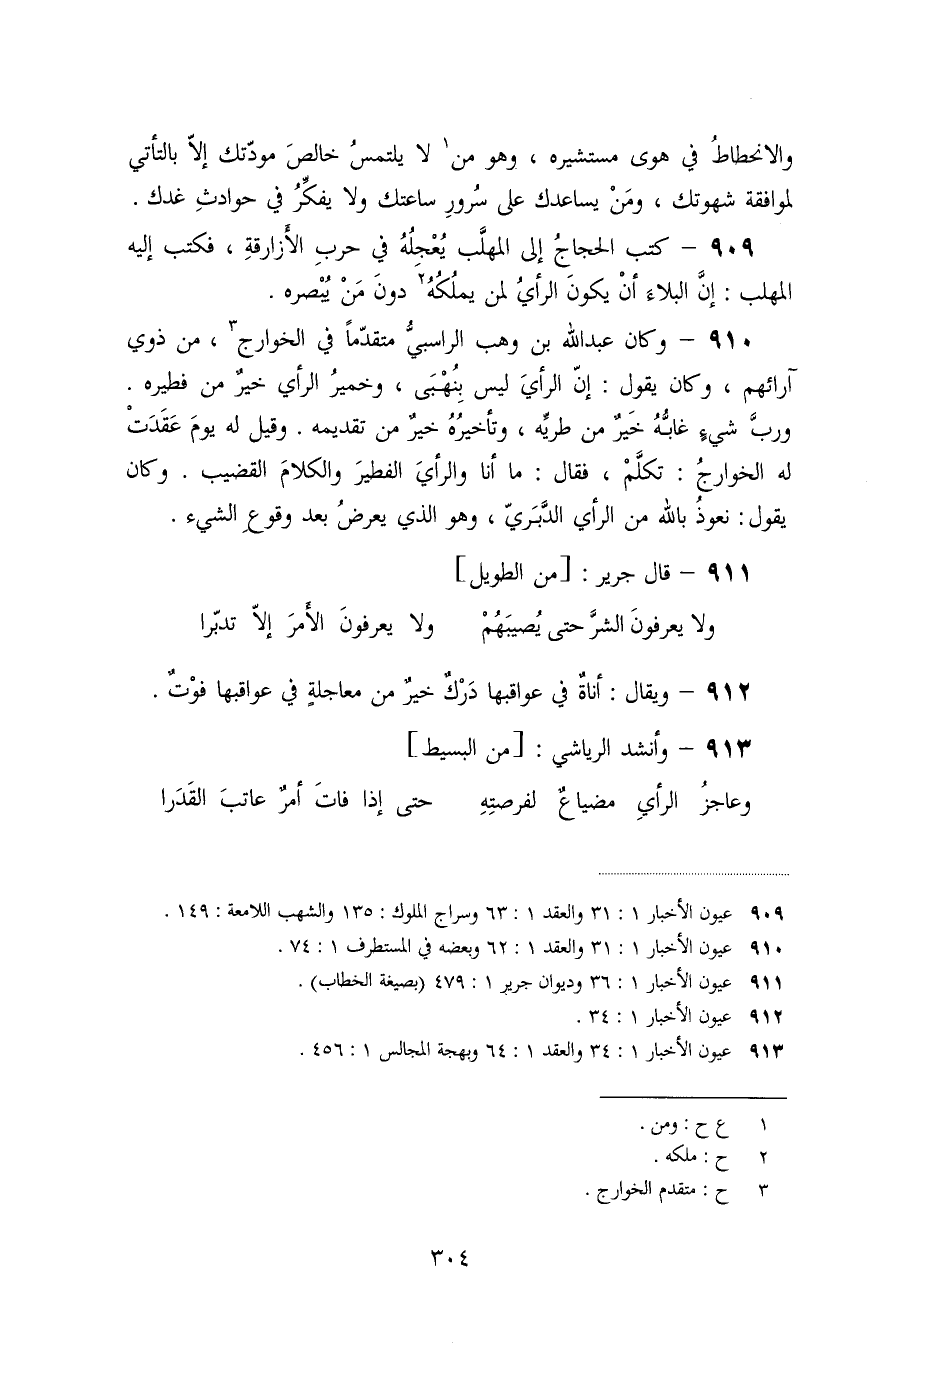 والانحطاطُ في هوى مستشيره ، وهو من١ لا يلتمسُ خالصَ مودّتك إلاّ بالتأتي
لموافقة شهوتك ، ومَنْ يساعدك على سُرورِ ساعتك ولا يفكِّرُ في حوادثِ غدك .
٩٠٩ – كتب الحجاجُ إلى المهلَّب يُعْجِلُهُ في حربِ الأَزارقةِ ، فكتب إليه
المهلب : إنَّ البلاءَ أنْ يكونَ الرأيُ لمن يملُكُهُ٢ دونَ مَنْ يُبْصره .
٩١٠ – وكان عبدالله بن وهب الراسبيُّ متقدّماً في الخوارج٣ ، من ذوي
آرائهم ، وكان يقول : إنّ الرأيَ ليس بِنُهْبَى ، وخميرُ الرأي خيرٌ من فطيره .
وربَّ شيءٍ غابُّهُ خَيرٌ من طريِّه ، وتأخيرُهُ خيرٌ من تقديمه . وقيل له يومَ عَقَدَتْ
له الخوارجُ : تكلَّمْ ، فقال : ما أنا والرأيَ الفطيرَ والكلامَ القضيب . وكان
يقول : نعوذُ بالله من الرأي الدَّبَريّ ، وهو الذي يعرضُ بعد وقوعِ الشيء .
٩١١ – قال جرير : [من الطويل]
ولا يعرفونَ الشرَّ حتى يُصيبَهُمْ ولا يعرفونَ الأَمرَ إلاّ تدبّرا
٩١٢ – ويقال : أناةٌ في عواقبها دَرْكٌ خيرٌ من معاجلةٍ في عواقبها فوْتٌ .
٩١٣ – وأنشد الرياشي : [من البسيط]
وعاجزُ الرأيِ مضياعٌ لفرصتِهِ حتى إذا فاتَ أمرٌ عاتبَ القَدَرا
٩٠٩ عيون الأخبار ١ : ٣١ والعقد ١ : ٦٣ وسراج الملوك : ١٣٥ والشهب اللامعة : ١٤٩ .
٩١٠ عيون الأخبار ١ : ٣١ والعقد ١ : ٦٢ وبعضه في المستطرف ١ : ٧٤ .
٩١١ عيون الأخبار ١ : ٣٦ وديوان جرير ١ : ٤٧٩ (بصيغة الخطاب) .
٩١٢ عيون الأخبار ١ : ٣٤ .
٩١٣ عيون الأخبار ١ : ٣٤ والعقد ١ : ٦٤ وبهجة المجالس ١ : ٤٥٦ .
١ ع ح : ومن .
٢ ح : ملكه .
٣ ح : متقدم الخوارج .
٣٠٤